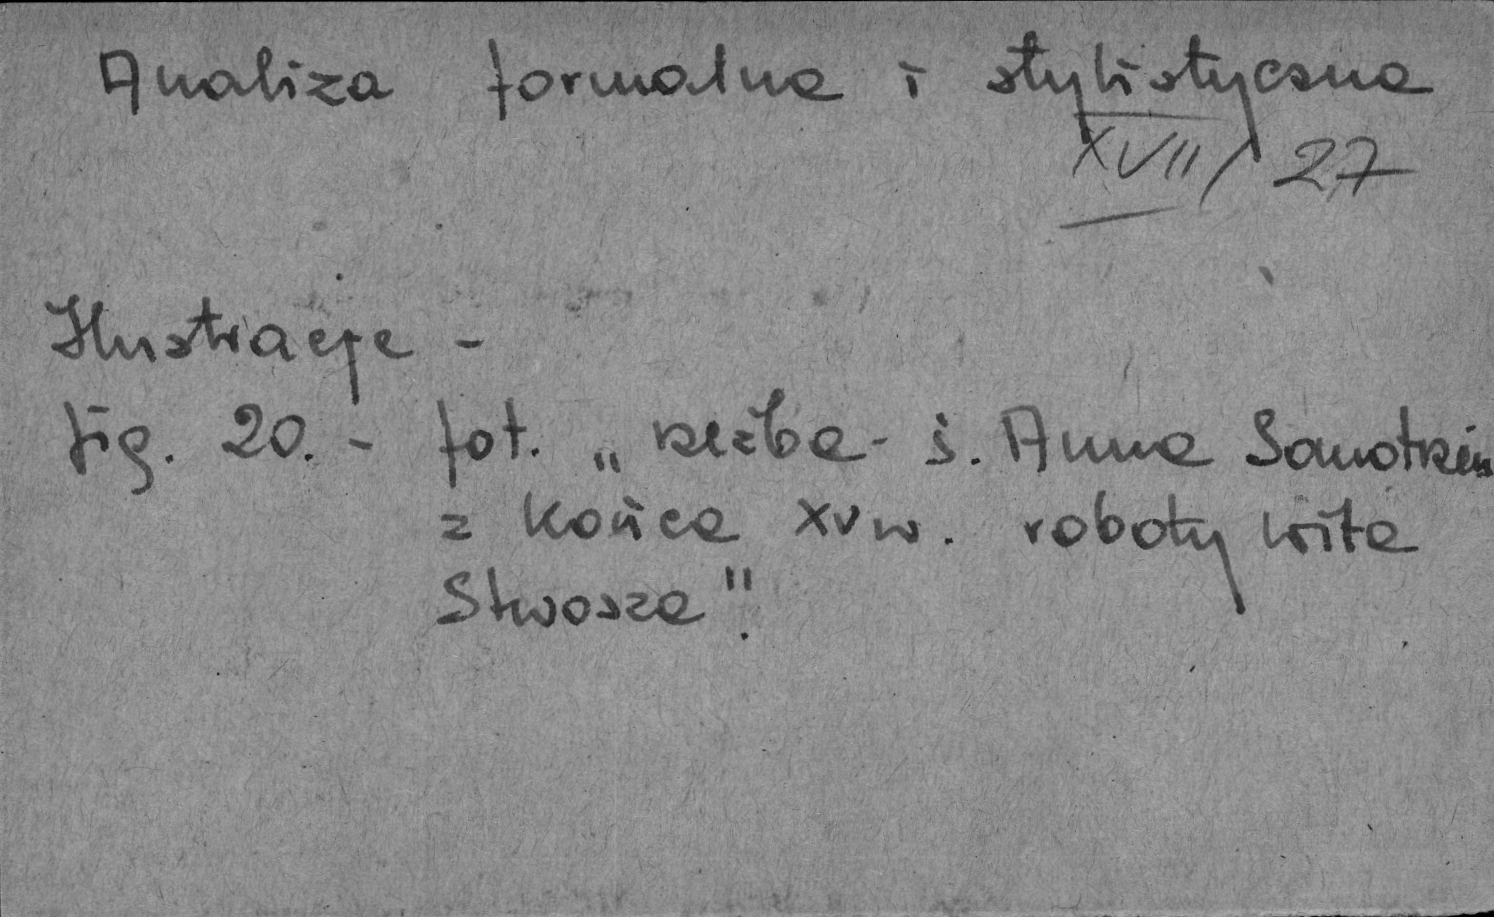 Analiza formalna i stylistyczna
XVII / 27
Ilustracje -
fig. 20. - fot. „rzeźba - ś. Anna Samotrzecia
z końca XV w. roboty Wita
Stwosza".